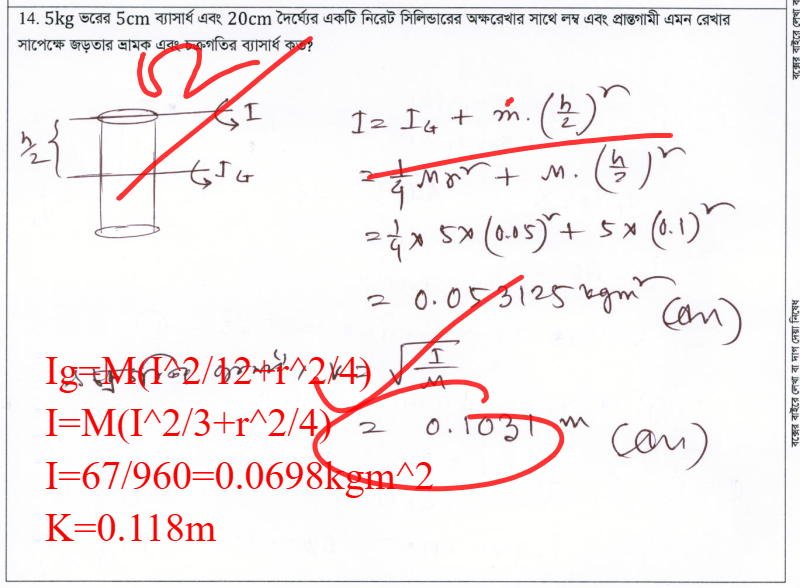 14. 5kg ভরের 5cm ব্যাসার্ধ এবং 20cm দৈর্ঘ্যের একটি নিরেট সিলিন্ডারের অক্ষরেখার সাথে লম্ব এবং প্রান্তগামী এমন রেখার
সাপেক্ষে জড়তার ভ্রামক এবং চক্রগতির ব্যাসার্ধ কত?
I
h/2
I_G
I = I_G + m.(h/2)^2
= 1/4 Mr^2 + M.(h/2)^2
= 1/4 × 5 × (0.05)^2 + 5 × (0.1)^2
= 0.053125 kgm^2 (Ans)
K = √(I/M)
= 0.1031 m (Ans)
Ig=M(I^2/12+r^2/4)
I=M(I^2/3+r^2/4)
I=67/960=0.0698kgm^2
K=0.118m
বক্সের বাইরে লেখা বা দাগ দেয়া নিষেধ